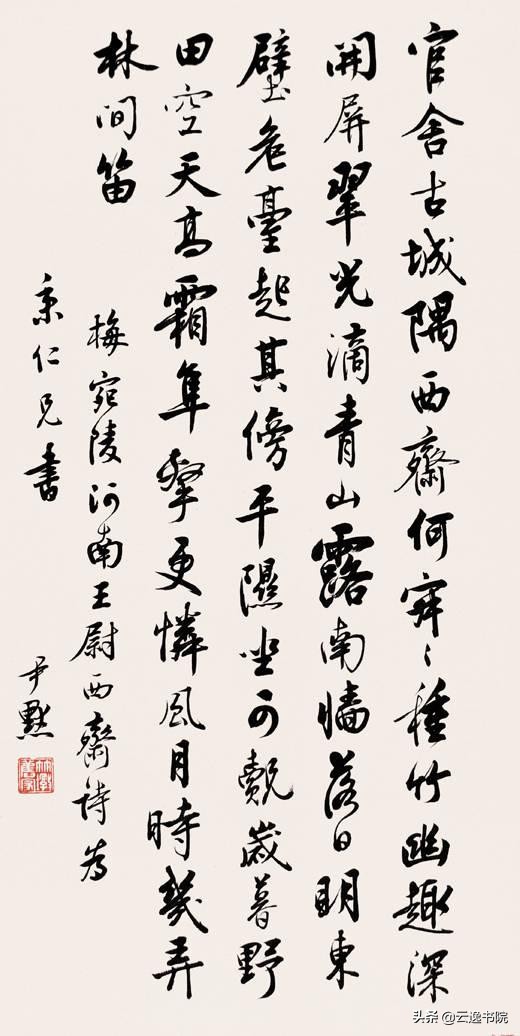 官舍古城隅西齋何寂〻種竹幽趣深
開屏翠光滴青山露南牆落日明東
壁危臺起其傍平隰坐可覿歲暮野
田空天高霜隼擊更憐風月時幾弄
林間笛
梅宛陵河南王尉西齋詩為
秉仁兄書
尹默
头条 @云逸书院